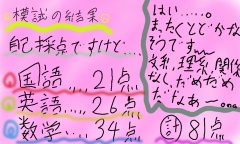 模試の結果
自己採点ですけど…
国語…. 21点
英語…. 26点
数学…. 34点
計81点
はい……。
まったくとどかな
そうです〜
文系,理系,関係
なし、だめだめ
だなぁー